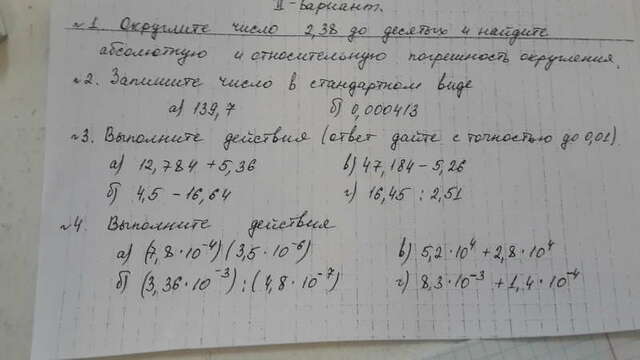 II-Вариант.
№1. Округлите число 2,38 до десятых и найдите
абсолютную и относительную погрешность округления.
№2. Запишите число в стандартном виде
а) 139,7 б) 0,000413
№3. Выполните действия (ответ дайте с точностью до 0,01).
а) 12,784 + 5,36 в) 47,184 - 5,26
б) 4,5 - 16,64 г) 16,45 : 2,51
№4. Выполните действия
а) (7,8·10⁻⁴)(3,5·10⁻⁶) в) 5,2·10⁴ + 2,8·10⁴
б) (3,36·10⁻³) : (4,8·10⁻⁷) г) 8,3·10⁻³ + 1,4·10⁻⁴